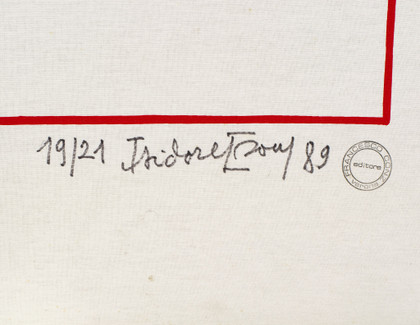 19/21 Isidore Isou 89
FRANCESCO CONZ
editore
Verona